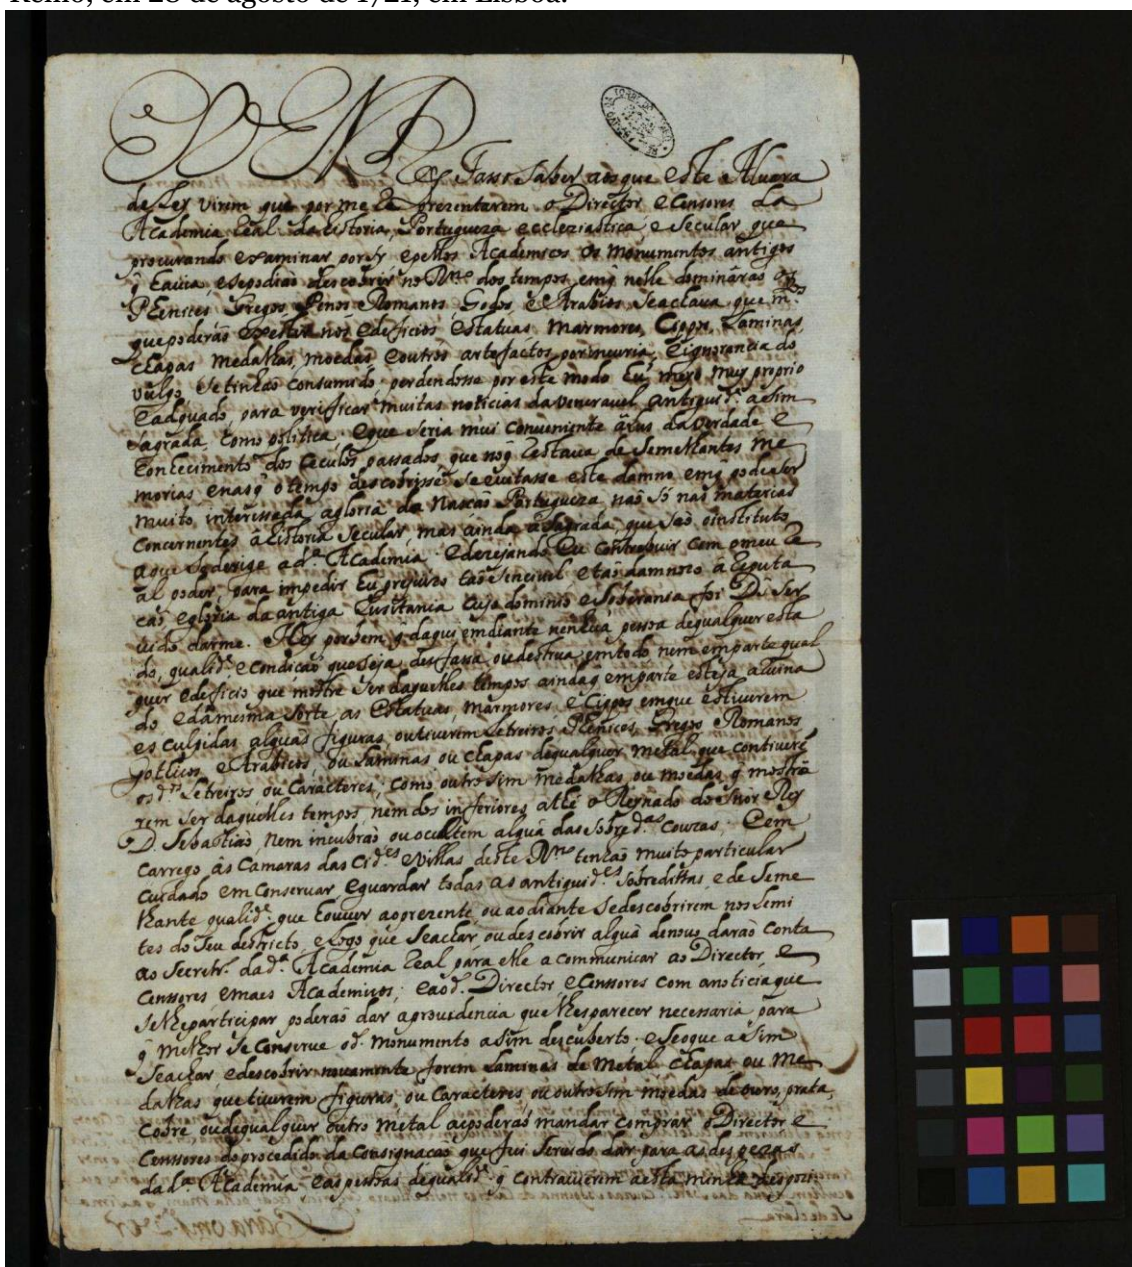 Reino, em 28 de agosto de 1721, em Lisboa.
EU ELREY Fasso saber aos que este Alvara
de Ley virem que por me Representarem o Director e Censores da
Academia Real da Historia Portugueza ecclesiastica e Secular que
procurando examinar por sy e pellos Academicos os monumentos antigos
q̃ havia, e se podião descobrir no Rno dos tempos, em q̃ nelle dominárão os
Phenices Gregos Penos Romanos, Godos e Arabios se achava que m.tos
que poderão existir nos edeficios estatuas marmores, Cippos, Laminas
chapas medalhas, moedas e outros artefactos, por incuria, e ignorancia do
vulgo, se tinhão consumido, perdendosse por este modo hu meyo muy proprio
e adquado, para verificar muitas noticias da veneravel antiguid.e asim
sagrada, como politica. e que seria mui conveniente á lus da verdade e
conhecimento dos seculos passados que no q̃ restava de semelhantes me
morias, e nas q̃ o tempo descobrisse se evitasse este damno em q̃ pode ser
muito interessada a gloria da Nasção Portugueza não só nas materias
concernentes á historia Secular, mas ainda á Sagrada, que são o instituto
a que se derige a d.a Academia. E dezejando Eu contribuir com o meu Re
al poder, para impedir hu prejuizo tão sencivel e tão damnozo a Reputa
cão e gloria da antiga Lusitania cujo dominio e soberania foi Ds. ser
vido darme. Hey por bem q̃ daqui em diante nenhũa pessoa de qualquer esta
do, qualid.e e condição que seja desfassa ou destrua em todo nem em parte qual
quer edeficio que mostre ser daquelles tempos ainda q̃ em parte esteja aruina
do e da mesma sorte, as estatuas, marmores e Cippos em que estiverem
esculpidas algũas figuras, ou tiverem Letreiros Phenices, Gregos Romanos
Gothicos e Arabicos, ou Laminas ou chapas de qualquer metal que contiverẽ
os d.os Letreiros, ou Caracteres, como outro sim medalhas, ou moedas q̃ mostra
rem ser daquelles tempos, nem dos inferiores athé o Reynado do Snor Rey
D. Sebastião, nem incubrão ou ocultem algũa das sobred.as couzas; E em
carrego ás Camaras das Cid.es e villas deste Rno tenhão muito particular
cuidado em conservar e guardar todas as antiguid.es sobredittas, e de seme
lhante qualid.e que houver ao prezente, ou ao diante se descobrirem nos Lemi
tes do seu destricto, e logo que se achar, ou descobrir algũa de novo darão conta
ao Secretr.o da d.a Academia Real para elle a communicar ao Director, e
Censsores e maes Academicos; e ao d.o Director e Censsores com a noticia que
se lhe participar poderão dar a providencia que lhes parecer necessaria para
q̃ milhor se conserve o d.o monumento asim descuberto. e se o que asim
se achar e descobrir novamente forem Laminas de metal chapas ou me
dalhas que tiverem figuras, ou Caracteres, ou outro sim moedas de ouro, prata,
cobre, ou de qualquer outro metal as poderão mandar comprar o Director e
Censsores do procedido da Consignação que fui servido dar para as despezas
da d.a Academia e as pessoas de qualid.e q̃ contravierem a esta minha despozi